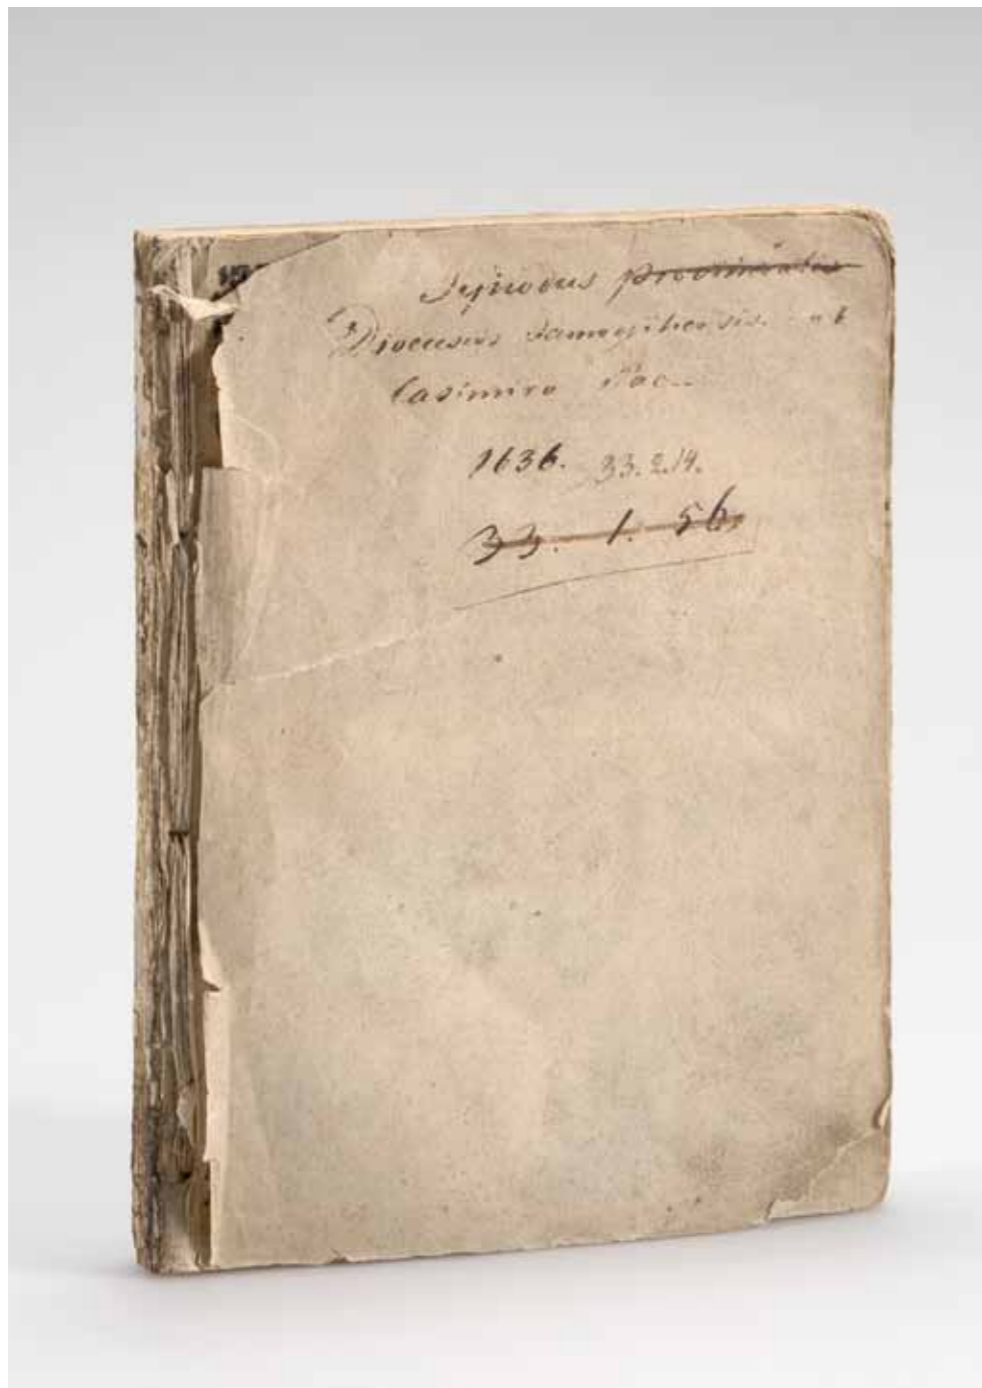 Synodus provincialis
Dioecesis Samogitiensis ab
Casimiro Pac..
1636. 33.2.14.
33. 1. 56.